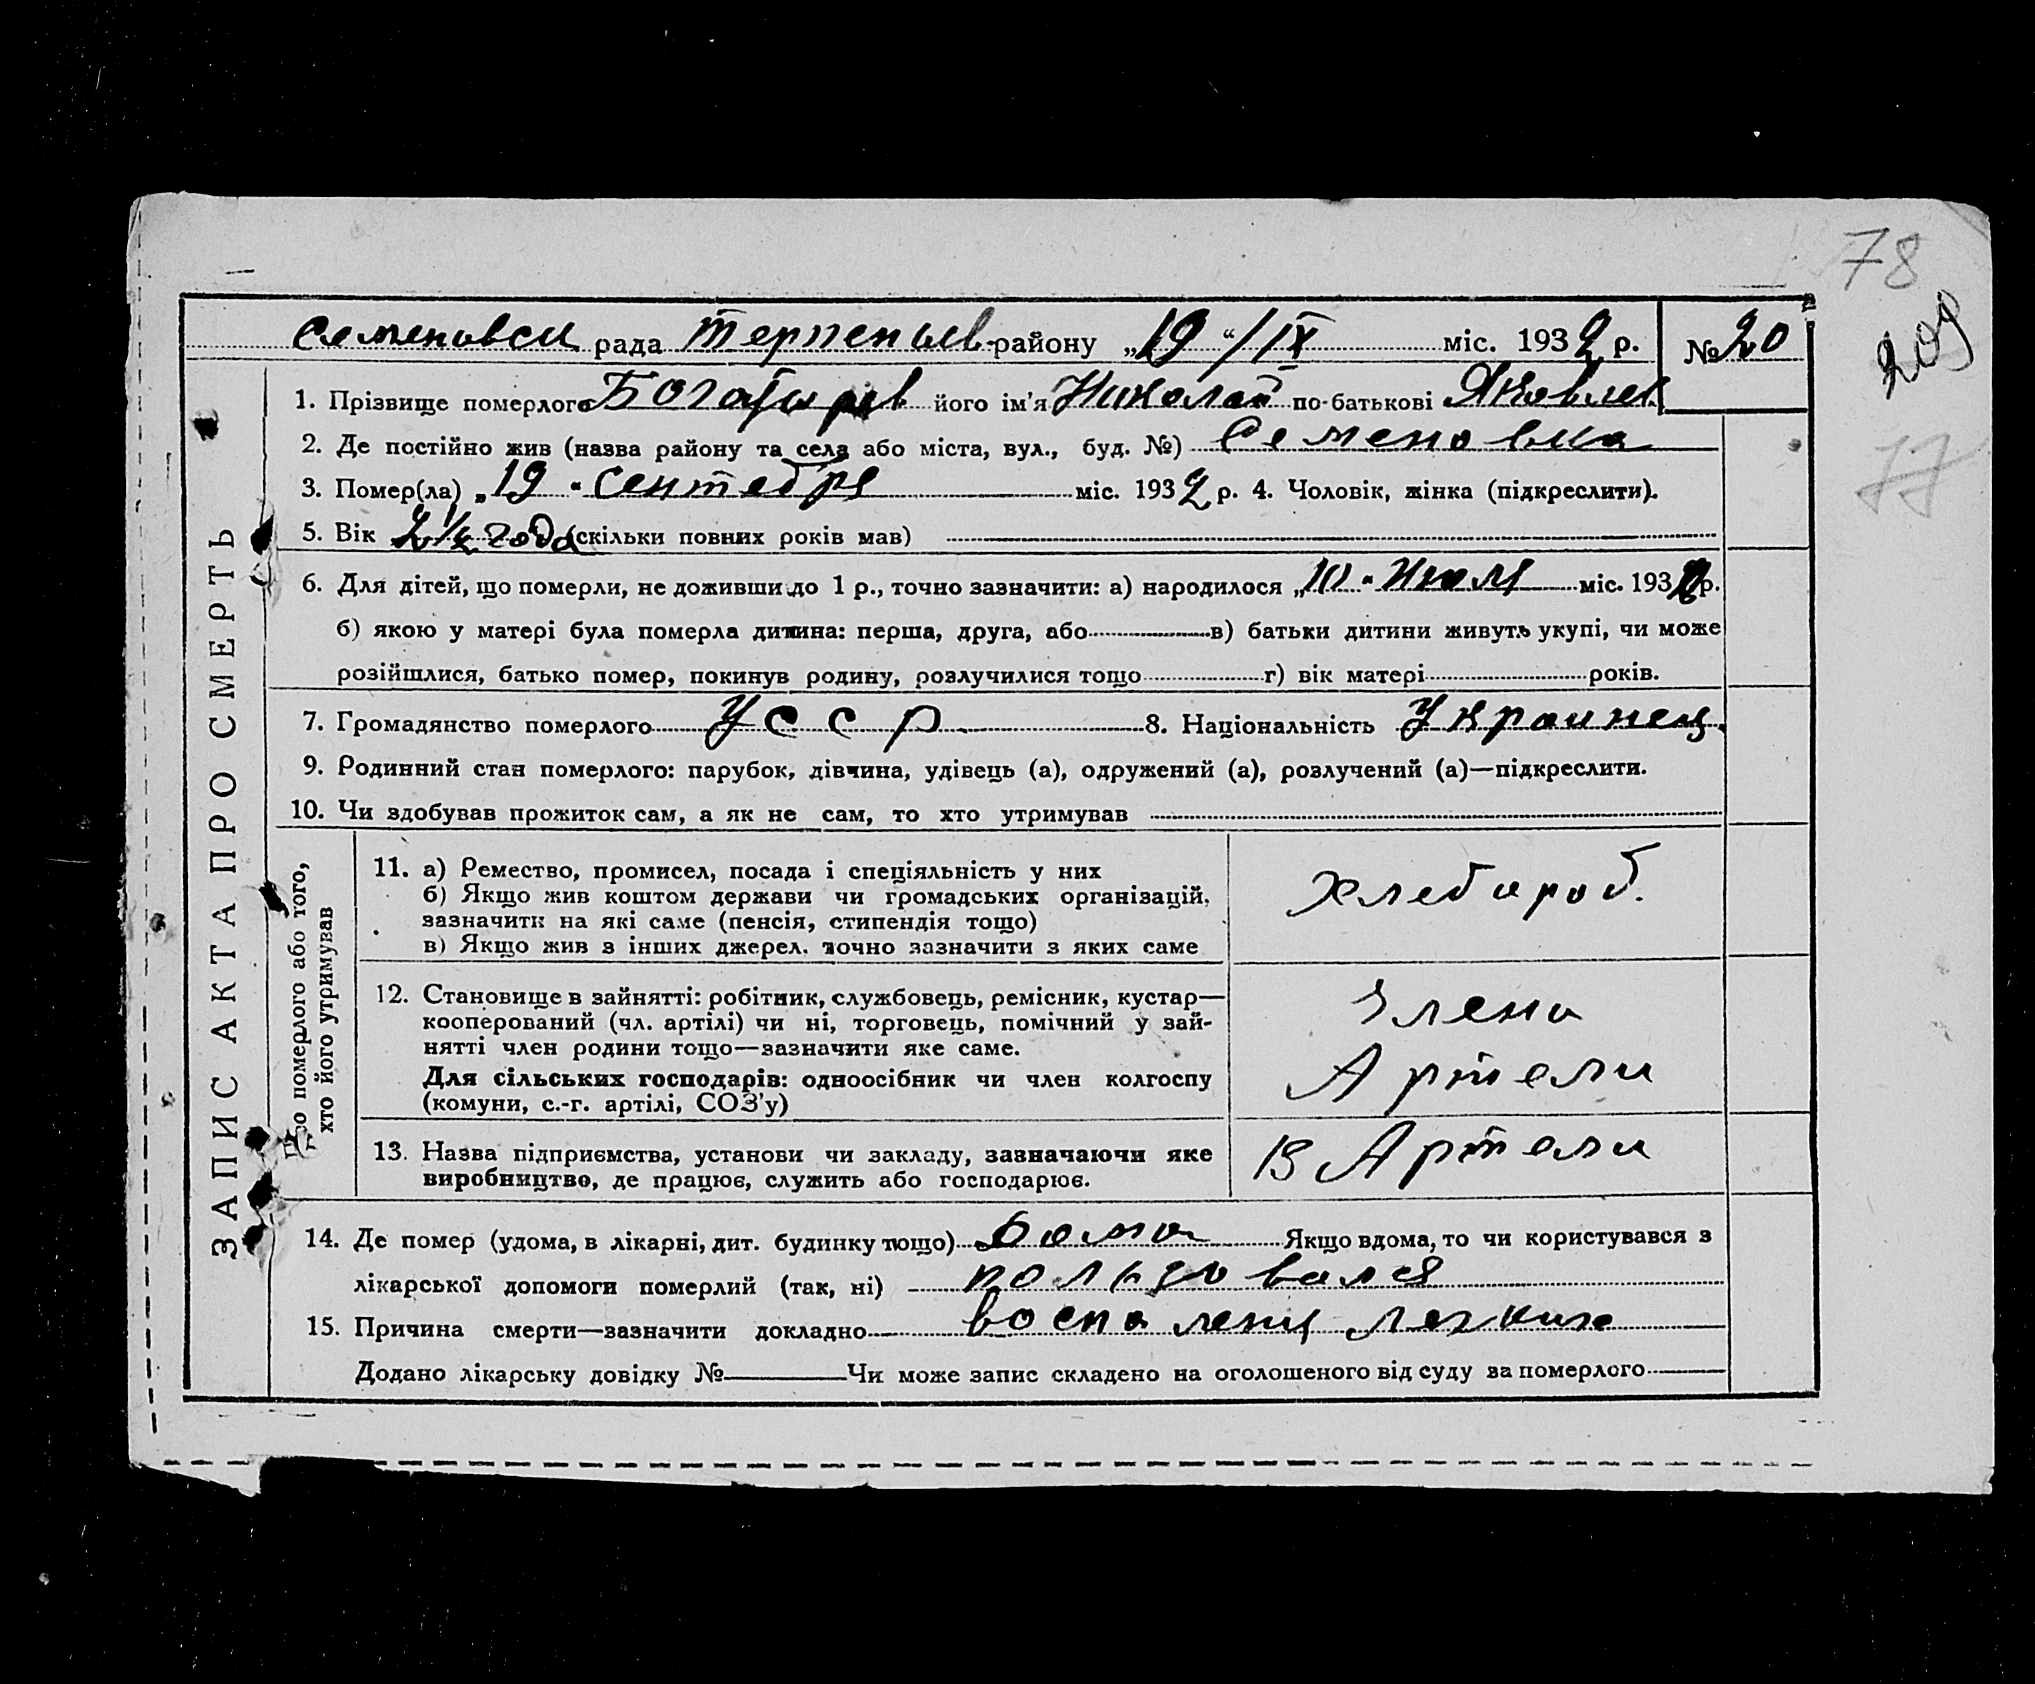 78
209
77
Семеновск рада Терпеньев району „19“/IX міс. 1932 р. № 20
ЗАПИС АКТА ПРО СМЕРТЬ
1. Прізвище померлого Богатирів його ім'я Николай по-батькові Яковлев
2. Де постійно жив (назва району та села або міста, вул., буд. №) Семеновка
3. Помер(ла) „19“ Сентебря міс. 1932 р. 4. Чоловік, жінка (підкреслити).
5. Вік 2 1/2 года (скільки повних років мав)
6. Для дітей, що померли, не доживши до 1 р., точно зазначити: а) народилося „10“ Июля міс. 193 р.
б) якою у матері була померла дитина: перша, друга, або в) батьки дитини живуть укупі, чи може
розійшлися, батько помер, покинув родину, розлучилися тощо г) вік матері років.
7. Громадянство померлого УССР 8. Національність Украинец
9. Родинний стан померлого: парубок, дівчина, удівець (а), одружений (а), розлучений (а)—підкреслити.
10. Чи здобував прожиток сам, а як не сам, то хто утримував
Про померлого або того,
хто його утримував
11. а) Ремество, промисел, посада і спеціяльність у них
б) Якщо жив коштом держави чи громадських організацій,
зазначити на які саме (пенсія, стипендія тощо)
в) Якщо жив з інших джерел, точно зазначити з яких саме
Хлебороб.
12. Становище в зайнятті: робітник, службовець, ремісник, кустар—
кооперований (чл. артілі) чи ні, торговець, помічний у зай-
нятті член родини тощо—зазначити яке саме.
Для сільських господарів: одноосібник чи член колгоспу
(комуни, с.-г. артілі, СОЗ'у)
Члена
Артели
13. Назва підприємства, установи чи закладу, зазначаючи яке
виробництво, де працює, служить або господарює.
В Артели
14. Де помер (удома, в лікарні, дит. будинку тощо) Дома Якщо вдома, то чи користувався з
лікарської допомоги померлий (так, ні) пользовался
15. Причина смерти—зазначити докладно воспалени легких
Додано лікарську довідку № Чи може запис складено на оголошеного від суду за померлого